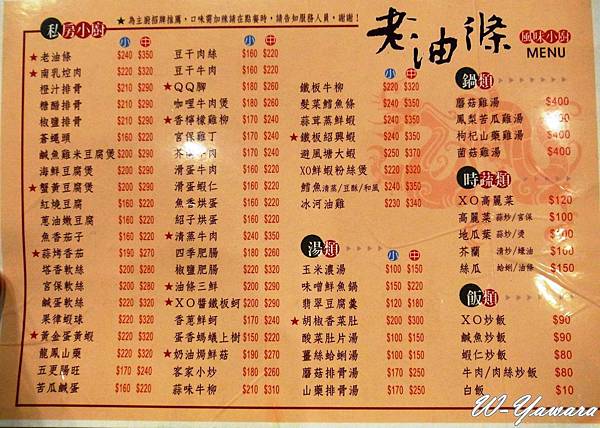 ★為主廚招牌推薦，口味需加辣請在點餐時，請告知服務人員，謝謝！
老油條
風味小廚
MENU
私房小廚
小 中
★老油條 $240 $350
★南乳焢肉 $220 $320
橙汁排骨 $210 $290
糖醋排骨 $210 $290
椒鹽排骨 $210 $290
蒼蠅頭 $160 $240
鹹魚雞米豆腐煲 $200 $290
海鮮豆腐煲 $200 $290
★蟹黃豆腐煲 $200 $290
紅燒豆腐 $160 $220
蔥油嫩豆腐 $160 $220
魚香茄子 $160 $220
★蒜烤香茄 $190 $270
塔香軟絲 $220 $320
宮保軟絲 $220 $320
鹹蛋軟絲 $220 $320
果律蝦球 $220 $320
★黃金蛋黃蝦 $220 $320
龍鳳山藥 $220 $320
五更腸旺 $170 $240
苦瓜鹹蛋 $160 $220
小 中
豆干肉絲 $160 $220
豆干牛肉 $160 $220
★QQ腳 $180 $260
咖哩牛肉煲 $180 $260
★香檸檬雞柳 $170 $240
宮保雞丁 $170 $240
芥蘭牛肉 $170 $240
滑蛋牛肉 $170 $240
滑蛋蝦仁 $180 $260
魚香烘蛋 $180 $260
紹子烘蛋 $180 $260
★清蒸牛肉 $240 $350
四季肥腸 $180 $260
椒鹽肥腸 $180 $260
★油條三鮮 $190 $270
★XO醬鐵板蚵 $190 $270
香蔥鮮蚵 $190 $270
蛋香螞蟻上樹 $150 $220
★奶油焗鮮菇 $190 $270
客家小炒 $160 $220
蒜味牛柳 $210 $310
小 中
鐵板牛柳 $220 $320
髮菜鱈魚條 $240 $350
蒜茸蒸鮮蝦 $200 $290
★鐵板紹興蝦 $200 $290
避風塘大蝦 $250 $370
XO鮮蝦粉絲煲 $220 $320
鱈魚清蒸/豆酥/和風 $240 $350
冰河油雞 $230 $340
湯類
小 中
玉米濃湯 $100 $150
味噌鮮魚鍋 $150 $220
翡翠豆腐羹 $120 $180
★胡椒香菜肚 $200 $300
酸菜肚片湯 $200 $300
薑絲蛤蜊湯 $150 $220
蘑菇排骨湯 $170 $250
山藥排骨湯 $170 $250
鍋類
蘑菇雞湯 $400
鳳梨苦瓜雞湯 $400
枸杞山藥雞湯 $400
菌菇雞湯 $400
時蔬類
XO高麗菜 $120
高麗菜 蒜炒/宮保 $100
地瓜葉 蒜炒/燙 $100
芥蘭 清炒/蠔油 $100
絲瓜 蛤蜊/油條 $150
飯類
XO炒飯 $90
鹹魚炒飯 $90
蝦仁炒飯 $80
牛肉/肉絲炒飯 $80
白飯 $10
W-Yawara